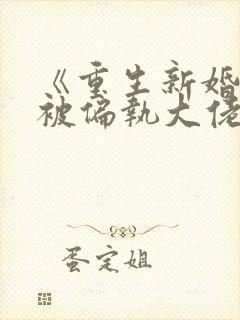 《重生新婚
被偏执大佬
蛋定姐